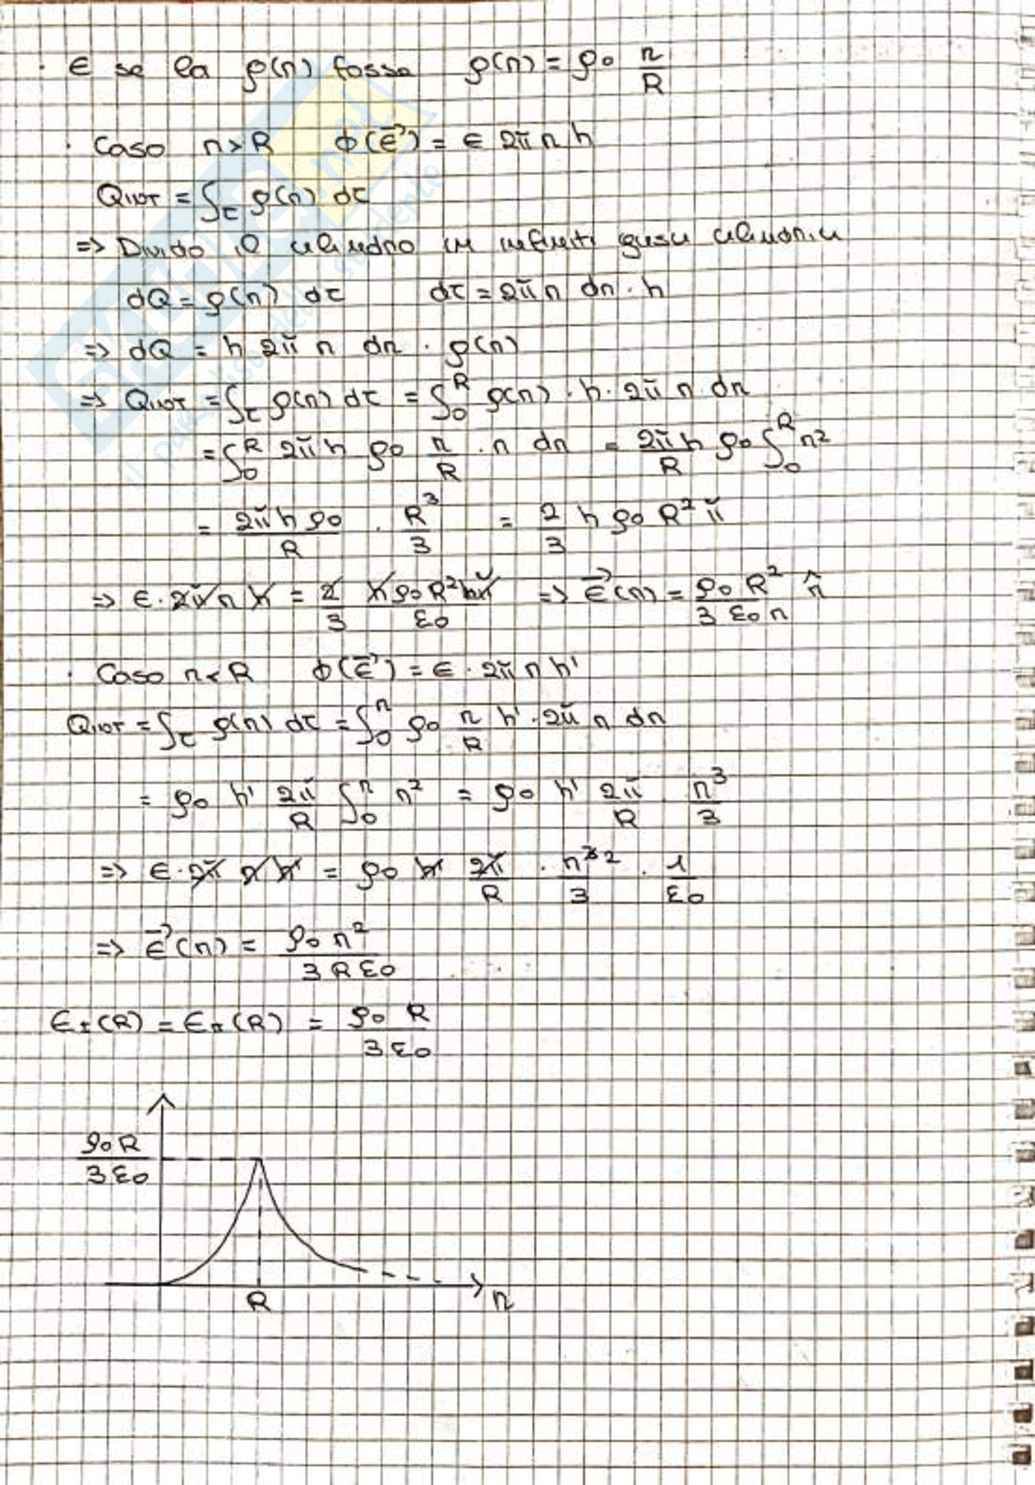 · E se la ρ(r) fosse ρ(r) = ρ₀ r/R
· Caso r > R Φ(E⃗) = E 2π r h
Q_INT = ∫_τ ρ(r) dτ
=> Divido il cilindro in infiniti gusci cilindrici
dQ = ρ(r) dτ dτ = 2π r dr · h
=> dQ = h 2π r dr · ρ(r)
=> Q_INT = ∫_τ ρ(r) dτ = ∫₀^R ρ(r) · h · 2π r dr
= ∫₀^R 2π h ρ₀ r/R · r dr = 2π h/R ρ₀ ∫₀^R r²
= 2π h ρ₀/R · R³/3 = 2/3 h ρ₀ R² π
=> E · 2π r h = 2/3 h ρ₀ R² π/ε₀ => E⃗(r) = ρ₀ R²/3 ε₀ r r̂
· Caso r < R Φ(E⃗) = E · 2π r h'
Q_INT = ∫_τ ρ(r) dτ = ∫₀^r ρ₀ r/R h' · 2π r dr
= ρ₀ h' 2π/R ∫₀^r r² = ρ₀ h' 2π/R r³/3
=> E · 2π r h = ρ₀ h 2π/R · r³ ²/3 · 1/ε₀
=> E⃗(r) = ρ₀ r²/3 R ε₀
E_I(R) = E_II(R) = ρ₀ R/3 ε₀
ρ₀ R/3 ε₀
R r